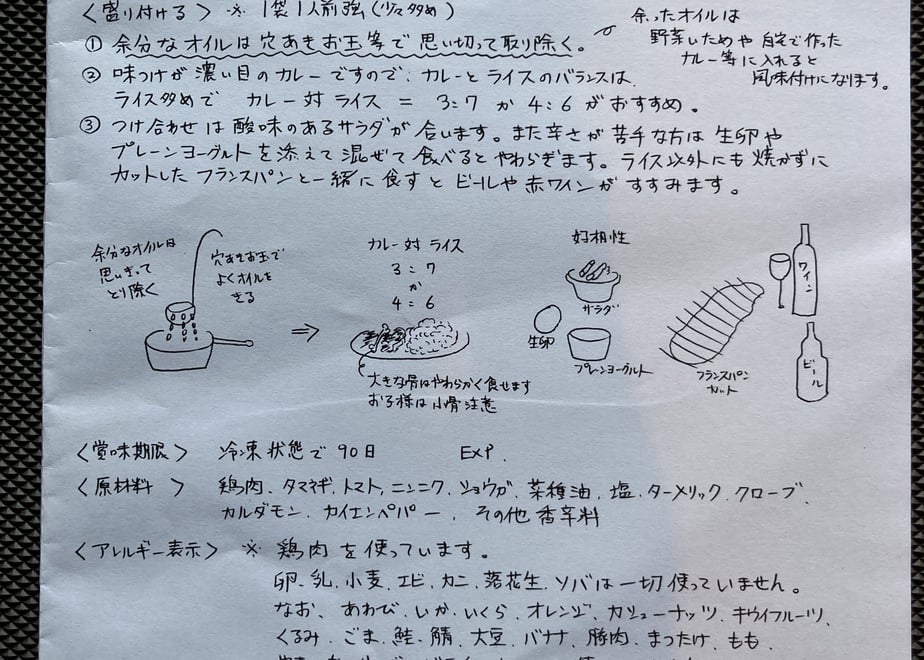 〈盛り付ける〉 ※ 1袋1人前強(少々多め)
① 余分なオイルは穴あきお玉等で思い切って取り除く。
余ったオイルは
野菜いためや自宅で作った
カレー等に入れると
風味付けになります。
② 味つけが濃い目のカレーですので、カレーとライスのバランスは、
ライス多めで カレー対ライス = 3:7 か 4:6 がおすすめ。
③ つけ合わせは酸味のあるサラダが合います。また辛さが苦手な方は生卵や
プレーンヨーグルトを添えて混ぜて食べるとやわらぎます。ライス以外にも焼かずに
カットしたフランスパンと一緒に食すとビールや赤ワインがすすみます。
余分なオイルは
思いきって
とり除く
穴あきお玉で
よくオイルを
きる
⇒
カレー対ライス
3:7
か
4:6
大きな骨はやわらかく食せます
お子様は小骨注意
好相性
サラダ
生卵
プレーンヨーグルト
フランスパン
カット
ワイン
ビール
〈賞味期限〉 冷凍状態で90日 EXP.
〈原材料〉 鶏肉、タマネギ、トマト、ニンニク、ショウガ、菜種油、塩、ターメリック、クローブ、
カルダモン、カイエンペパー、その他香辛料
〈アレルギー表示〉 ※ 鶏肉を使っています。
卵、乳、小麦、エビ、カニ、落花生、ソバは一切使っていません。
なお、あわび、いか、いくら、オレンジ、カシューナッツ、キウイフルーツ、
くるみ、ごま、鮭、鯖、大豆、バナナ、豚肉、まつたけ、もも